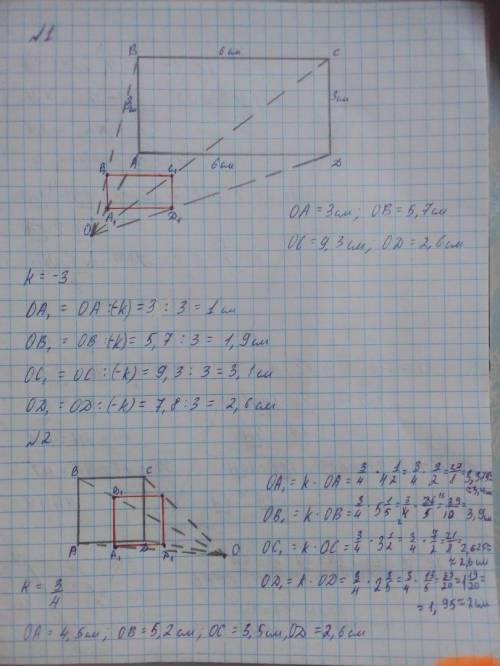 №1
B 6 см C
3 см
A 6 см D
B₁ C₁
A₁ D₁
O
OA = 3 см; OB = 5,7 см
OC = 9,3 см, OD = 2,6 см
k = -3
OA₁ = OA :(-k) = 3 : 3 = 1 см
OB₁ = OB :(-k) = 5,7 : 3 = 1,9 см
OC₁ = OC :(-k) = 9,3 : 3 = 3,1 см
OD₁ = OD :(-k) = 7,8 : 3 = 2,6 см
№2
B C
B₁
A₁ D₁ O
k = 3/4
OA₁ = k · OA = 3/4 · 4 1/2 = 3/4 · 9/2 = 27/8
OB₁ = k · OB = 3/4 · 5 1/5 = 3/4 · 26/5 = 39/10 = 3,9 см
OC₁ = k · OC = 3/4 · 3 1/2 = 3/4 · 7/2 = 21/8 = 2,625 ≈ 2,6 см
OD₁ = k · OD = 3/4 · 2 3/5 = 3/4 · 13/5 = 39/20 = 1 19/20 =
= 1,95 ≈ 2 см
OA = 4,5 см; OB = 5,2 см; OC = 3,5 см, OD = 2,6 см